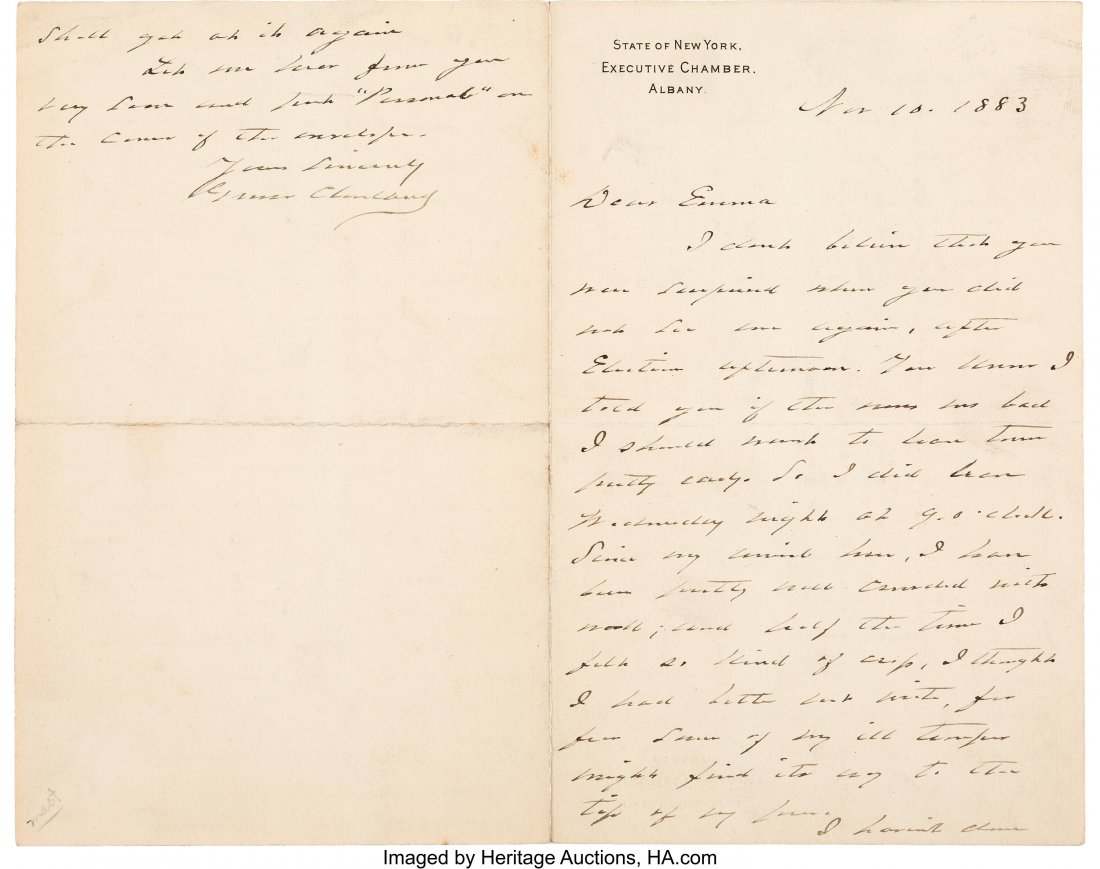 STATE OF NEW YORK,
EXECUTIVE CHAMBER.
ALBANY.
Nov 10. 1883
Dear Emma
I don't believe that you
were surprised when you did
not see me again, after
Election afternoon. You know I
told you if the news was bad
I should want to leave town
pretty early. So I did leave
Wednesday night at 9.o'clock.
Since my arrival here, I have
been pretty well crowded with
work; and half the time I
felt so kind of cross, I thought
I had better not write, for
fear some of my ill temper
might find its way to the
tip of my pen.
I haven't done
shall get at it again
Let me hear from you
very soon and put "Personal" on
the corner of the envelope.
Yours Sincerely
Grover Cleveland
Imaged by Heritage Auctions, HA.com